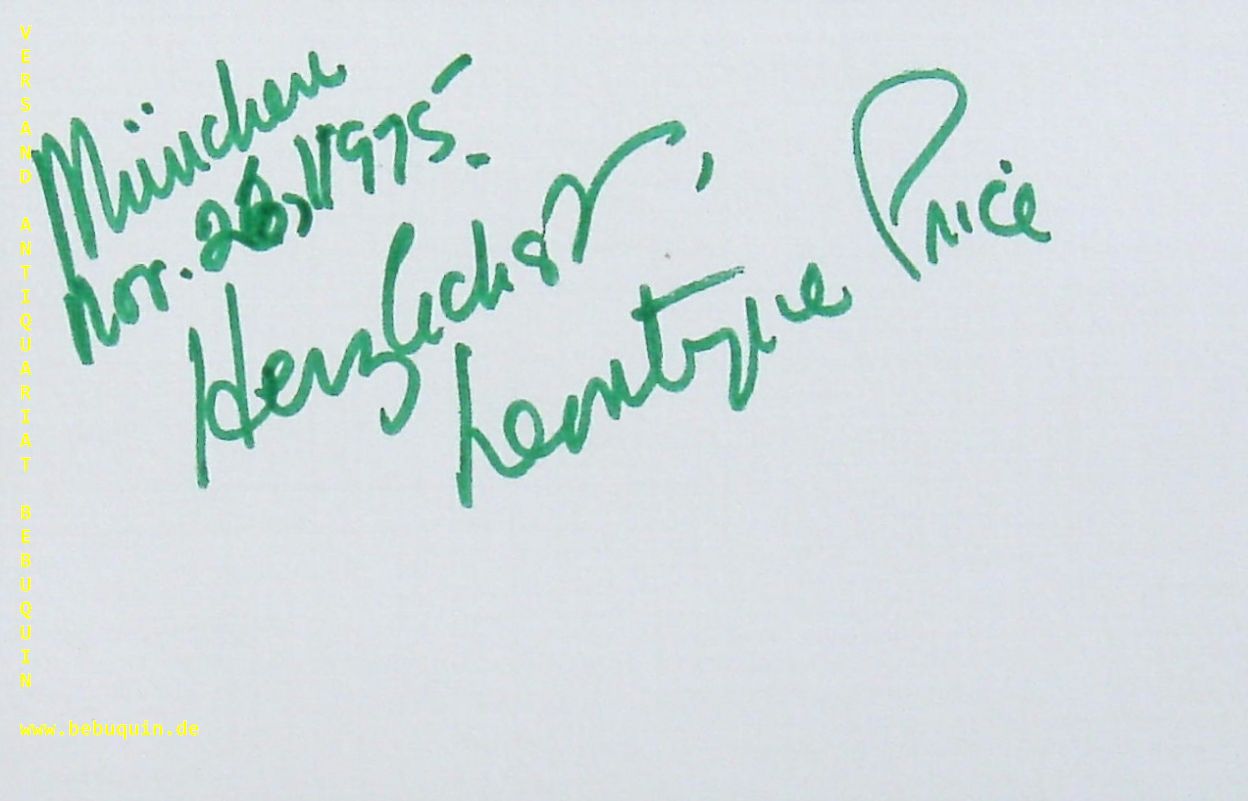 München
Nov. 26, 1975.
Herzlichst,
Leontyne Price
VERSAND ANTIQUARIAT BEBUQUIN
www.bebuquin.de